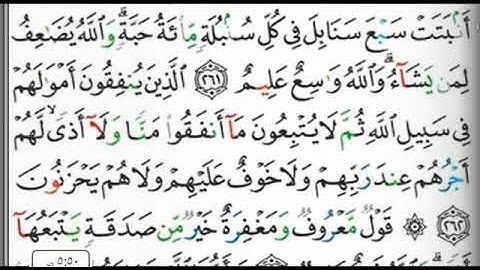 أَنۢبَتَتۡ سَبۡعَ سَنَابِلَ فِي كُلِّ سُنۢبُلَةٖ مِّاْئَةُ حَبَّةٖۗ وَٱللَّهُ يُضَٰعِفُ
لِمَن يَشَآءُۚ وَٱللَّهُ وَٰسِعٌ عَلِيمٌ ٢٦١ ٱلَّذِينَ يُنفِقُونَ أَمۡوَٰلَهُمۡ
فِي سَبِيلِ ٱللَّهِ ثُمَّ لَا يُتۡبِعُونَ مَآ أَنفَقُواْ مَنّٗا وَلَآ أَذٗى لَّهُمۡ
أَجۡرُهُمۡ عِندَ رَبِّهِمۡ وَلَا خَوۡفٌ عَلَيۡهِمۡ وَلَا هُمۡ يَحۡزَنُونَ
٢٦٢ ۞ قَوۡلٞ مَّعۡرُوفٞ وَمَغۡفِرَةٌ خَيۡرٞ مِّن صَدَقَةٖ يَتۡبَعُهَآ
٥:٥٠ ص